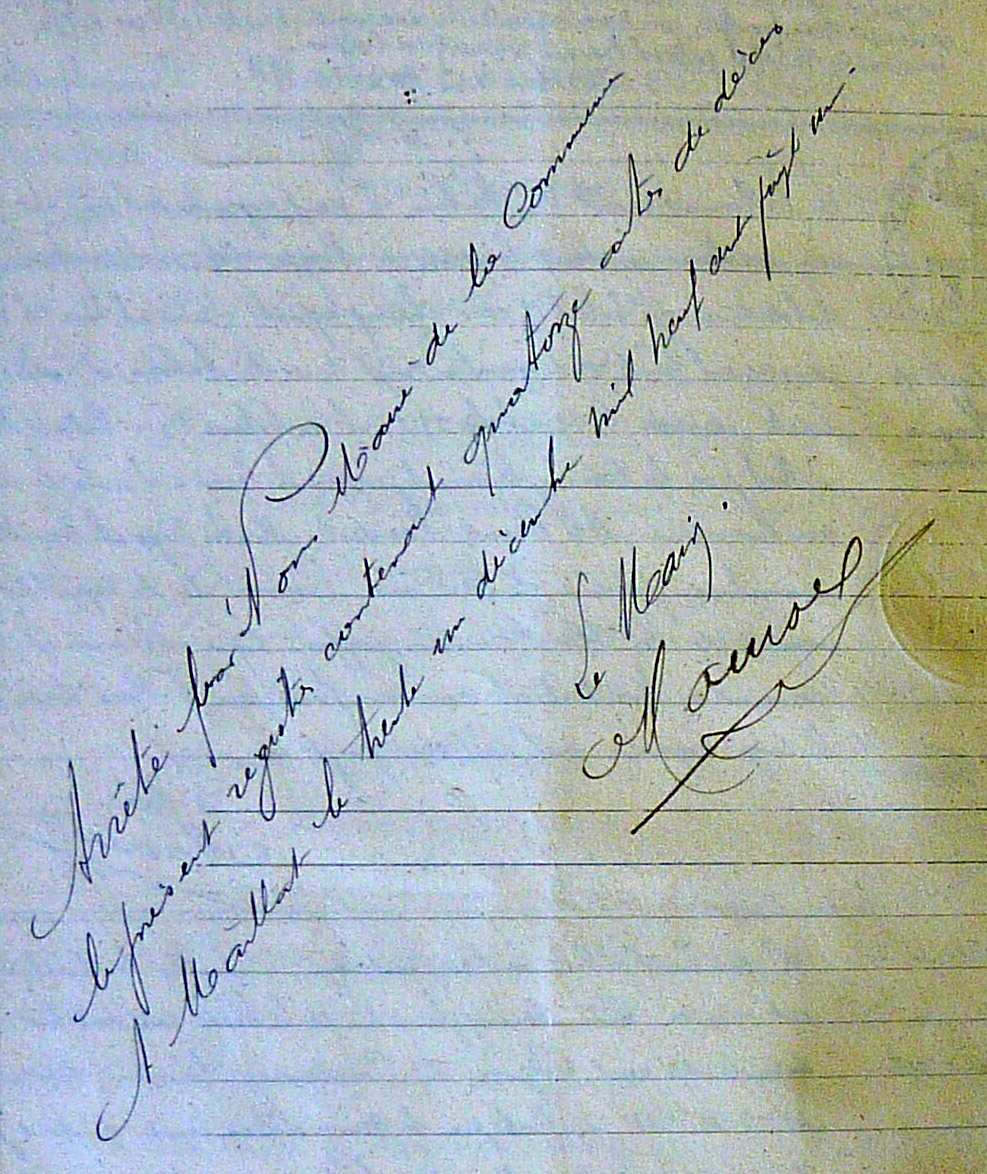 Arrêté par Nous Maire de la Commune
le présent registre contenant quatorze actes de décès
A Maillot le trente un décembre mil neuf cent vingt un.
Le Maire.